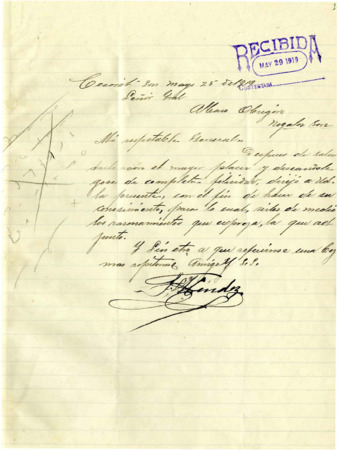 RECIBIDA
MAY 29 1919
CONTESTADA
Cocorit Son mayo 25 de 1919
Señor Gral
Alvaro Obregón
Nogales Son
Mi respetable General
Despues de salu
el mayor placer y deseandole
goce de completa felicidad, dirijo a Ud.
la presente, con el fin de hacer de su
conocimiento, para lo cual, sirba de medio
los razonamientos que espresa, la que ad
junto.
Y Sin otro a que referirme una vez
mas Amigo y S.S.
Méndez